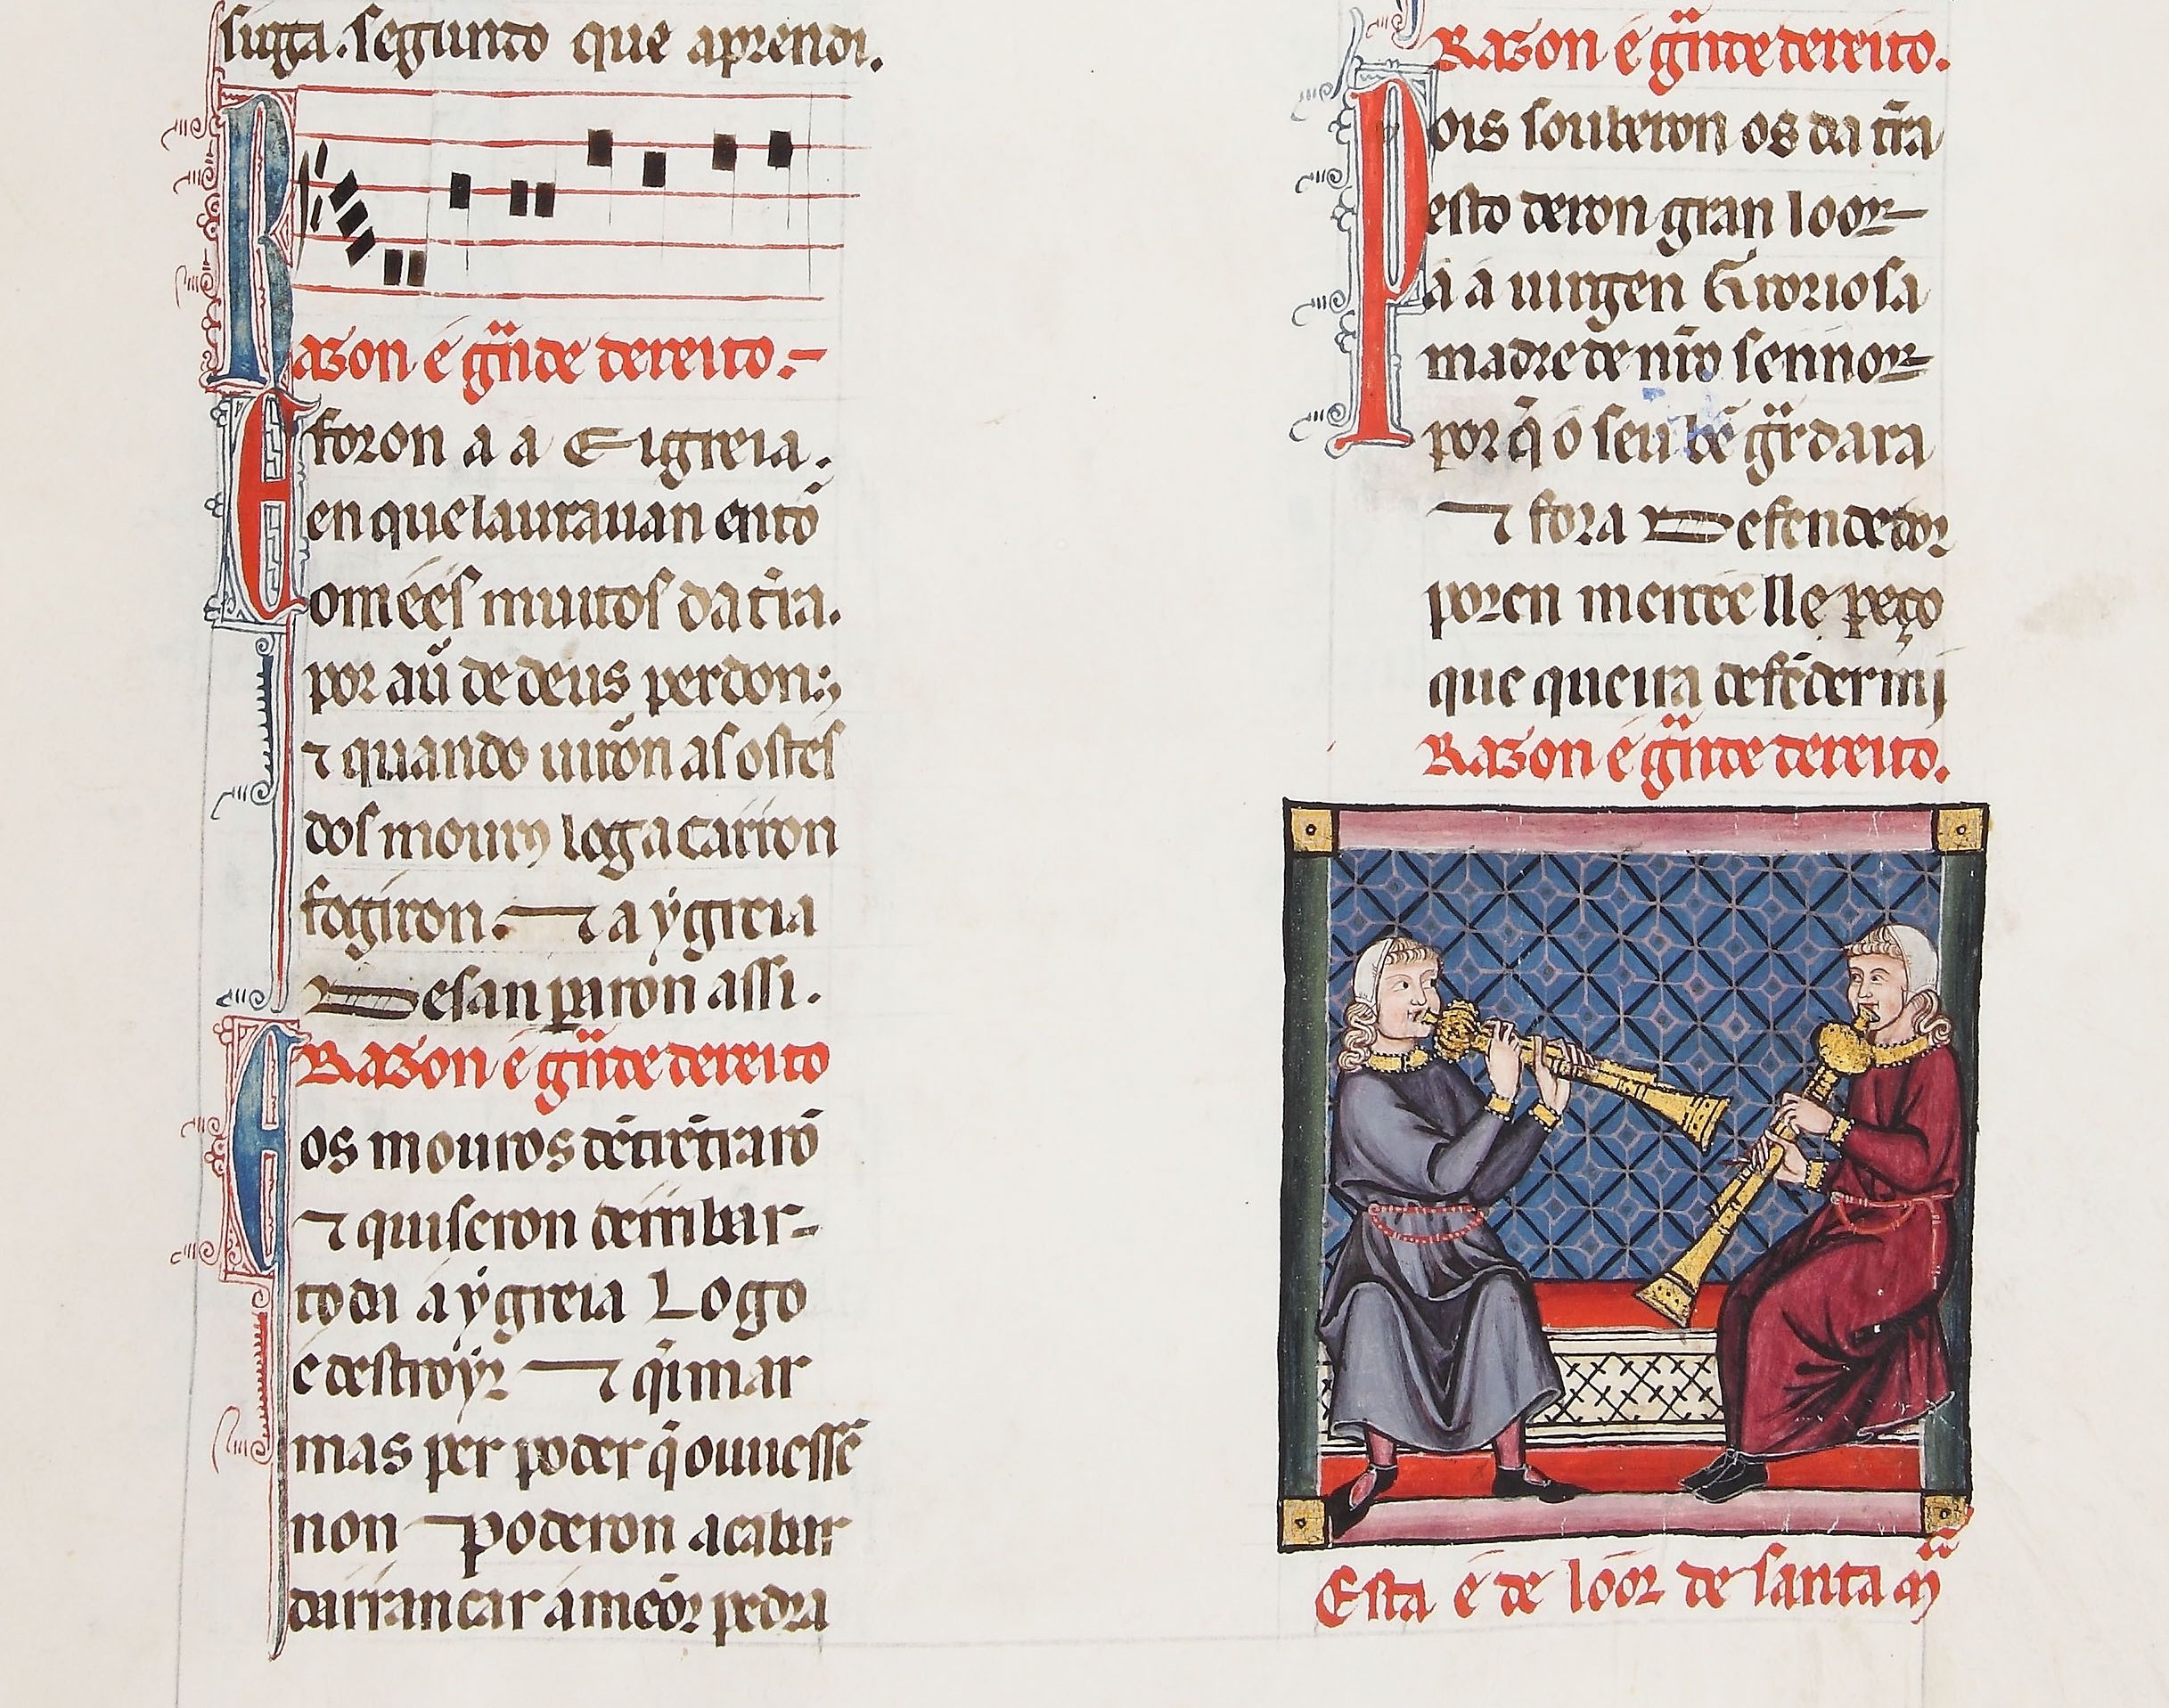 siiga. segundo que aprendi.
Razon é gͣnde dereito.
E foron a a Eigreia.
en que laurauan entõ
oméés muitos da tr̃ra.
por auer̃ de deus perdon;
⁊ quando uirõn as ostes
dos mouros log a carron
fogiron. ⁊ a ẏgreia
Desanpararon assi.
Razon é gͣnde dereito
E os mouros dẽtr ẽtrarõ
⁊ quiseron derribar
toda a ẏgreia Logo
e destroẏr ⁊ q̃imar
mas per poder q̃ ouuessẽ
non poderon acabar
darrancar a mẽor pedra
Razon é gͣnde dereito.
Pois souberon os da tr̃ra
esto deron gran loor
a a uirgen Groriosa
madre de nr̃o sennor
por q̃ o seu bẽ gͣrdara
⁊ fora Defendedor
poren mercee lle peço
que queira defẽdermj
Razon é gͣnde dereito.
Esta é de loor de santa Mͣ